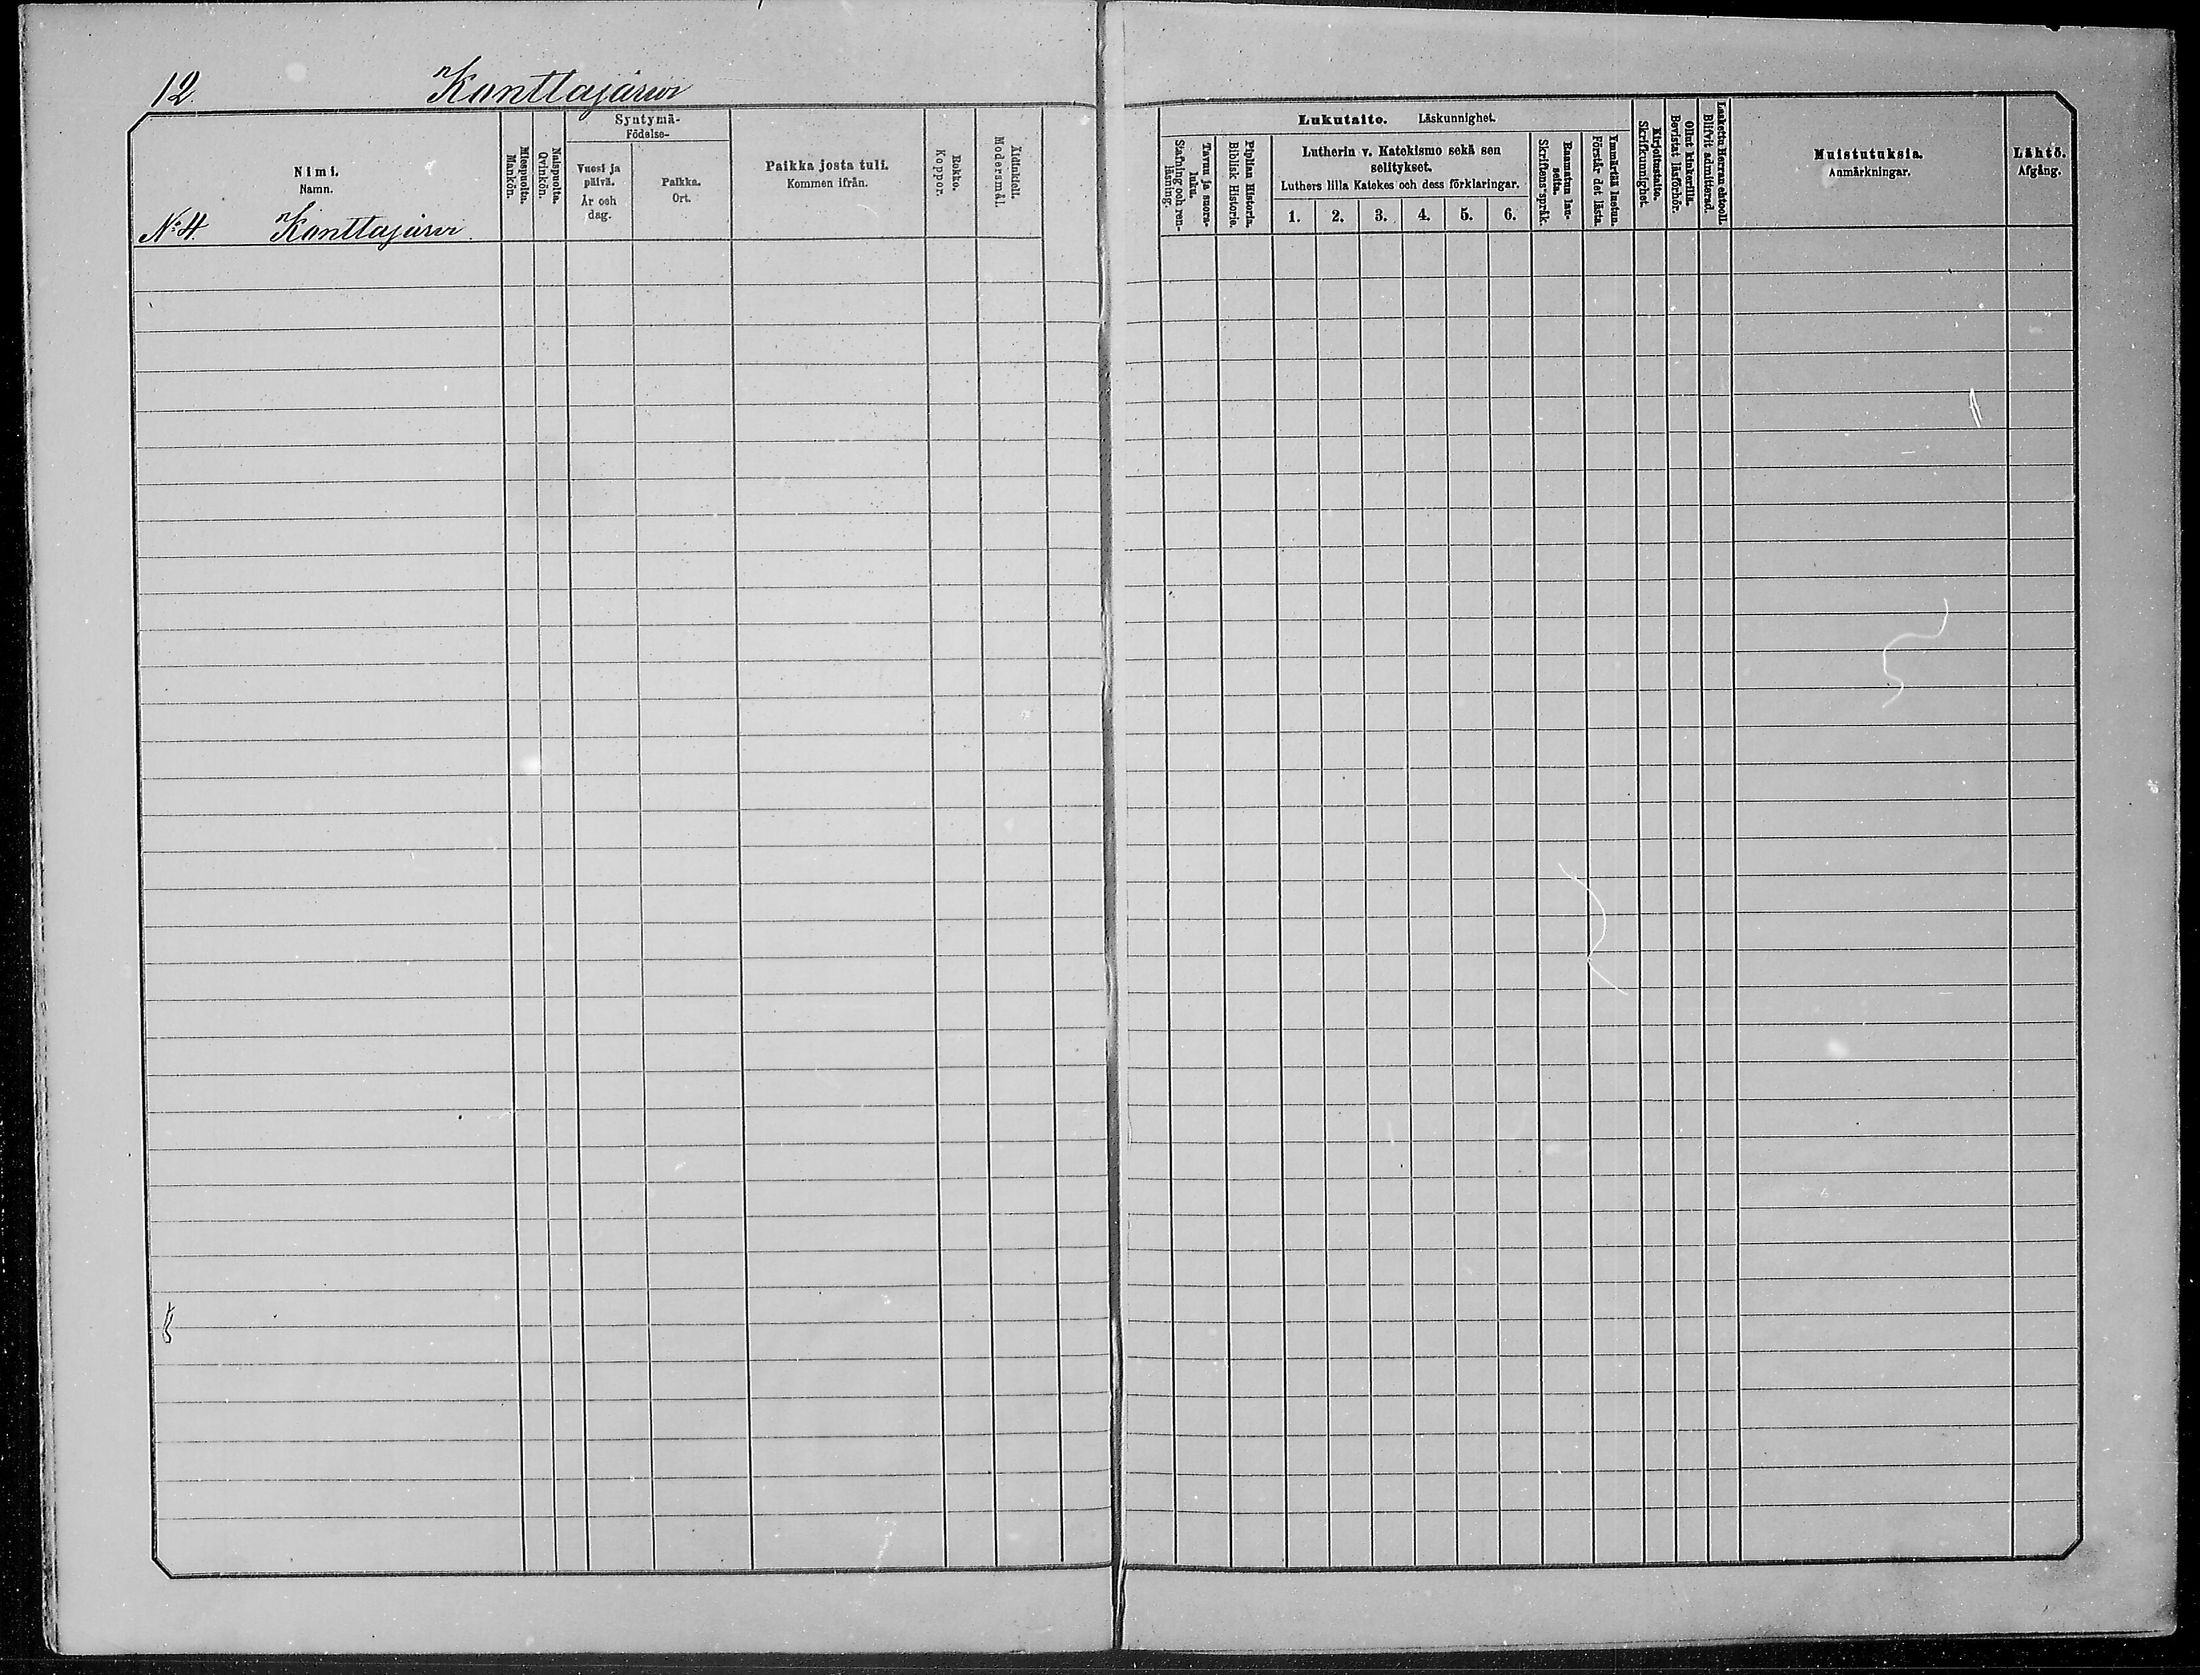 12. Konttajärvi
Nimi.
Namn.
Miespuolia.
Mankön.
Naispuolia.
Qvinkön.
Syntymä-
Födelse-
Vuosi ja
päivä.
År och
dag.
Paikka.
Ort.
Paikka josta tuli.
Kommen ifrån.
Rokko.
Koppor.
Äidinkieli.
Modersmål.
No 4. Konttajärvi
Lukutaito. Läskunnighet.
Tavuu ja suora-
luku.
Stafning och ren-
läsning.
Piplian Historia.
Biblisk Historie.
Lutherin v. Katekismo sekä sen
selitykset.
Luthers lilla Katekes och dess förklaringar.
1. 2. 3. 4. 5. 6.
Raamatun lau-
seita.
Skriftens språk.
Ymmärtää luetun.
Förstår det lästa.
Kirjoitustaito.
Skrifkunnighet.
Ollut kinkerillä.
Bevistat läsförhör.
Laskettu Herran ehtooll.
Blifvit admitterad.
Muistutuksia.
Anmärkningar.
Lähtö.
Afgång.